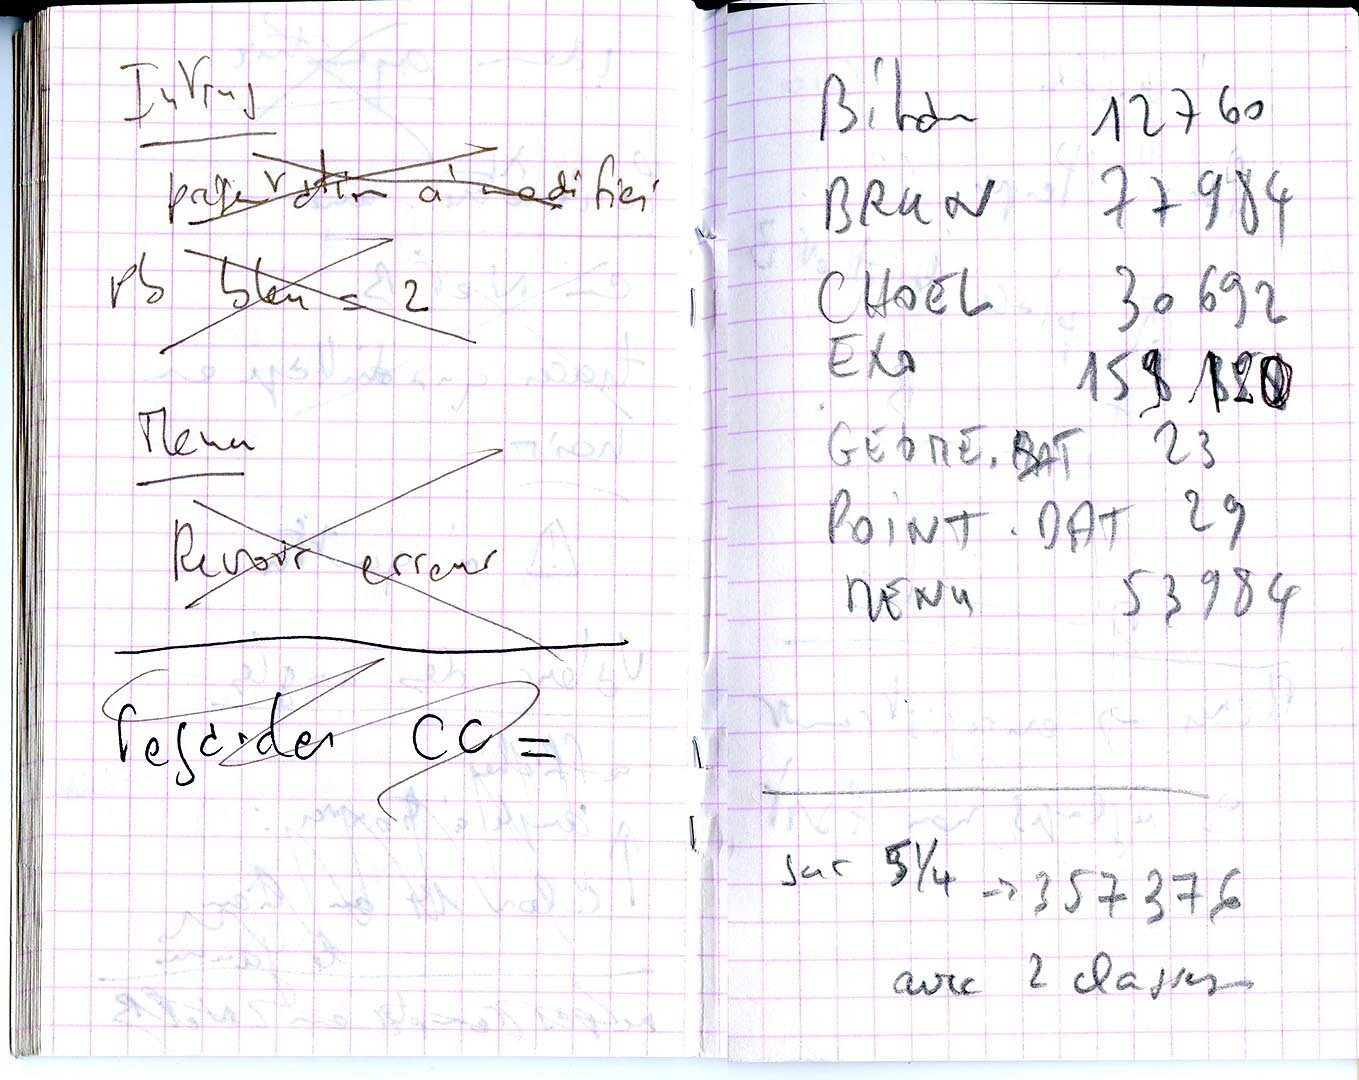 Intrus
page à modifier
Pb bleu = 2
Menu
Revoir erreur
Regarder CC =
Bilan 12760
BRUN 77984
CHOEL 30692
EXO
GEOME.BAT 23
POINT.DAT 29
MENU 53984
sur 5 1/4 -> 357376
avec 2 classes